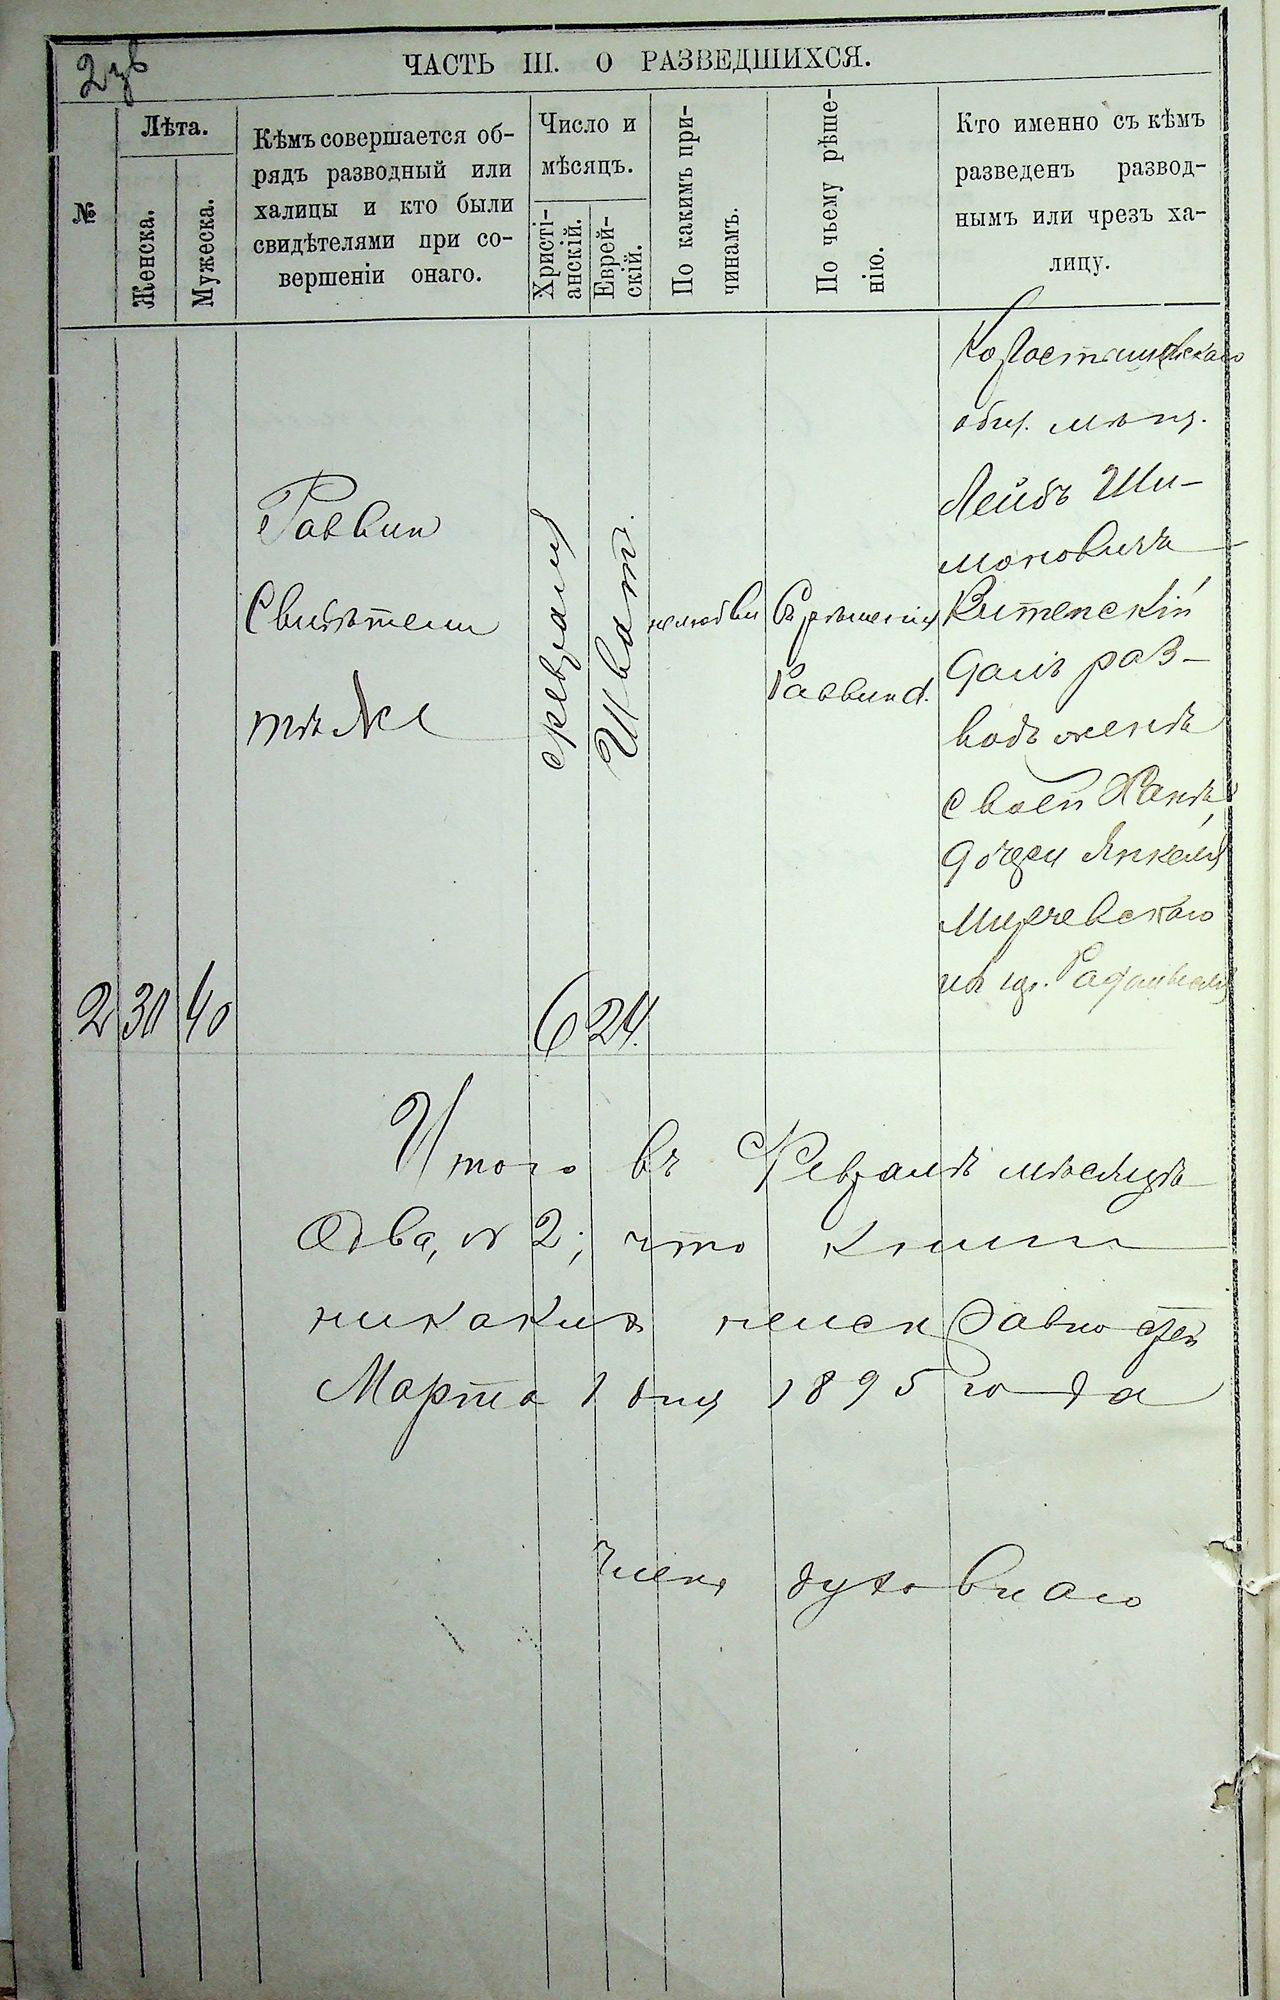 ЧАСТЬ III. О РАЗВЕДШИХСЯ.
№
Лѣта.
Женска.
Мужеска.
Кѣмъ совершается об-
рядъ разводный или
халицы и кто были
свидѣтелями при со-
вершеніи онаго.
Число и
мѣсяцъ.
Христі-
анскій.
Еврей-
скій.
По какимъ при-
чинамъ.
По чьему рѣше-
нію.
Кто именно съ кѣмъ
разведенъ развод-
нымъ или чрезъ ха-
лицу.
2
30
40
Раввин
Свидѣтели
тѣ же
февраля
6
Шват.
24.
нелюбви
Раввина.
Коростышевскаго
общ. мѣщ.
Лейбъ Ши-
моновичъ
Витенскій
далъ раз-
водъ женѣ
своей Ханѣ,
дочери Янкеля
Мирчевскаго
изъ
Итого въ Февралѣ мѣсяцѣ
два, № 2; что книги
никакихъ неисправностей
Марта 1 дня 1895 года
Членъ духовнаго